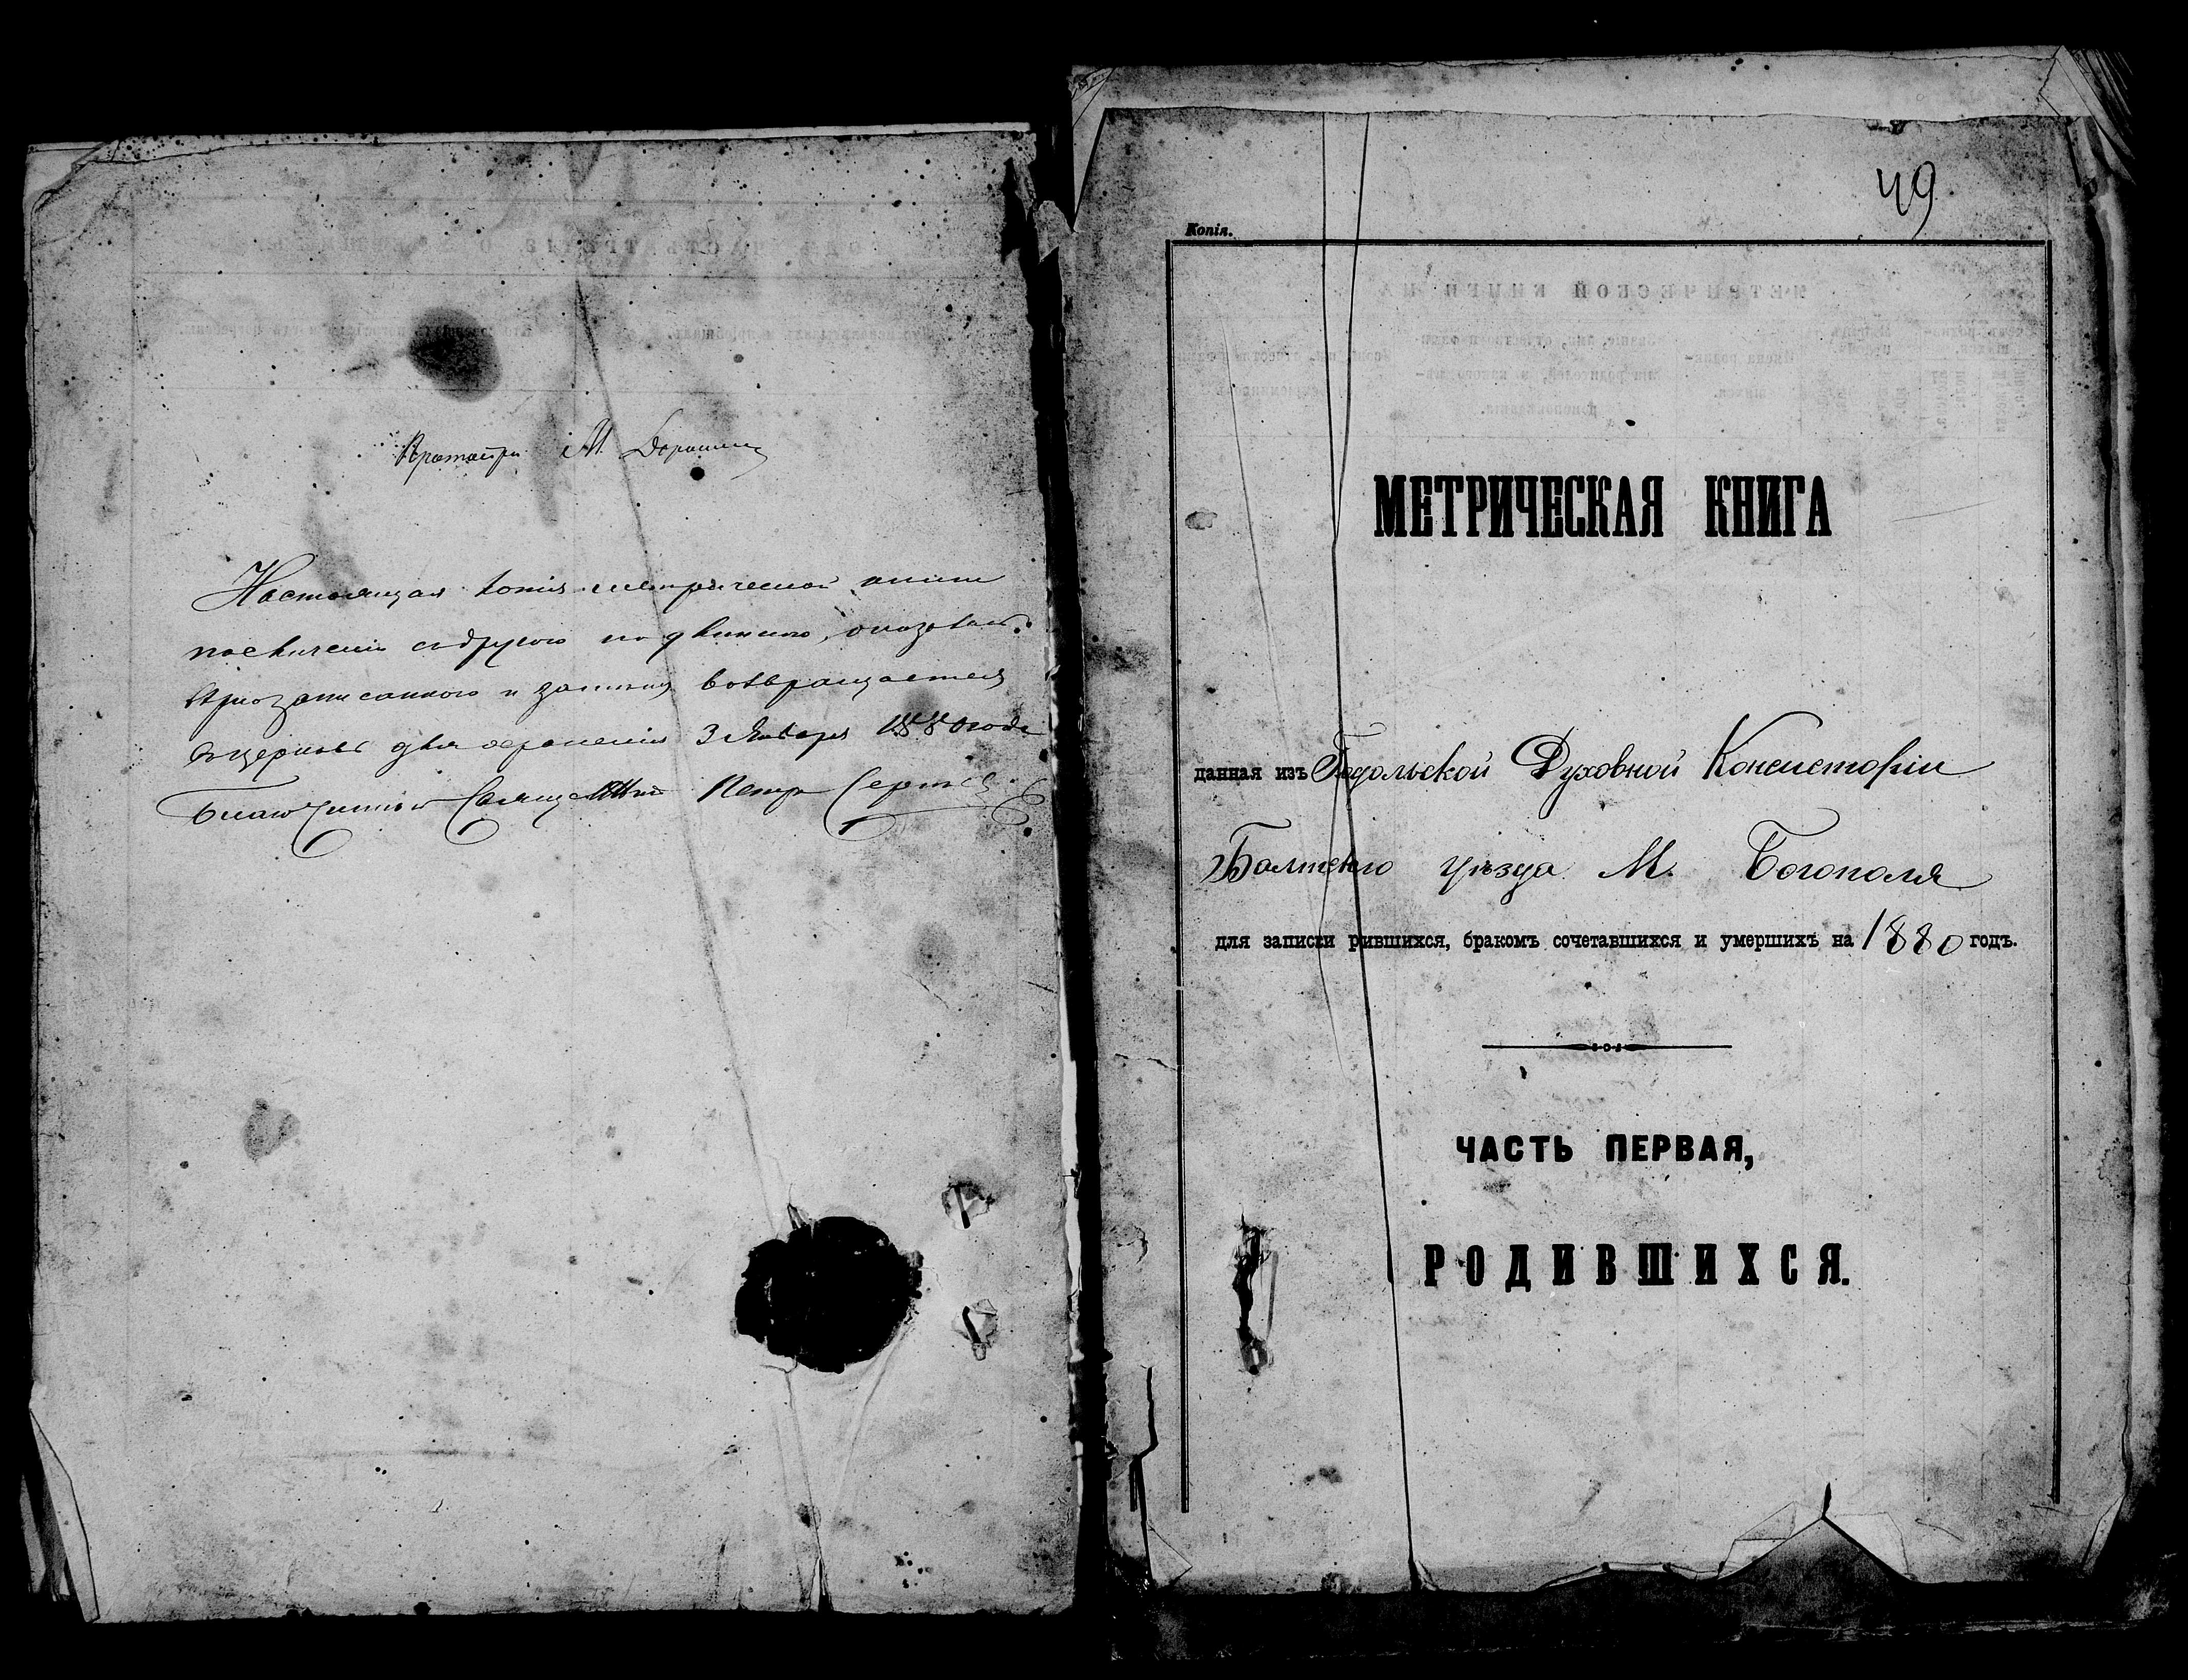 Протоіерей М. Дорошин
Настоящая копія метрической книги
по сличеніи съ другою подлинною,
возвращается
въ церковь для храненія 3 Января 1880 года
Благочинный Священникъ Петръ
49
Копія.
МЕТРИЧЕСКАЯ КНИГА
данная изъ Подольской Духовной Консисторіи
Балтскаго уѣзда М. Богополя
для записки рившихся, бракомъ сочетавшихся и умершихъ на 1880 годъ.
ЧАСТЬ ПЕРВАЯ,
РОДИВШИХСЯ.